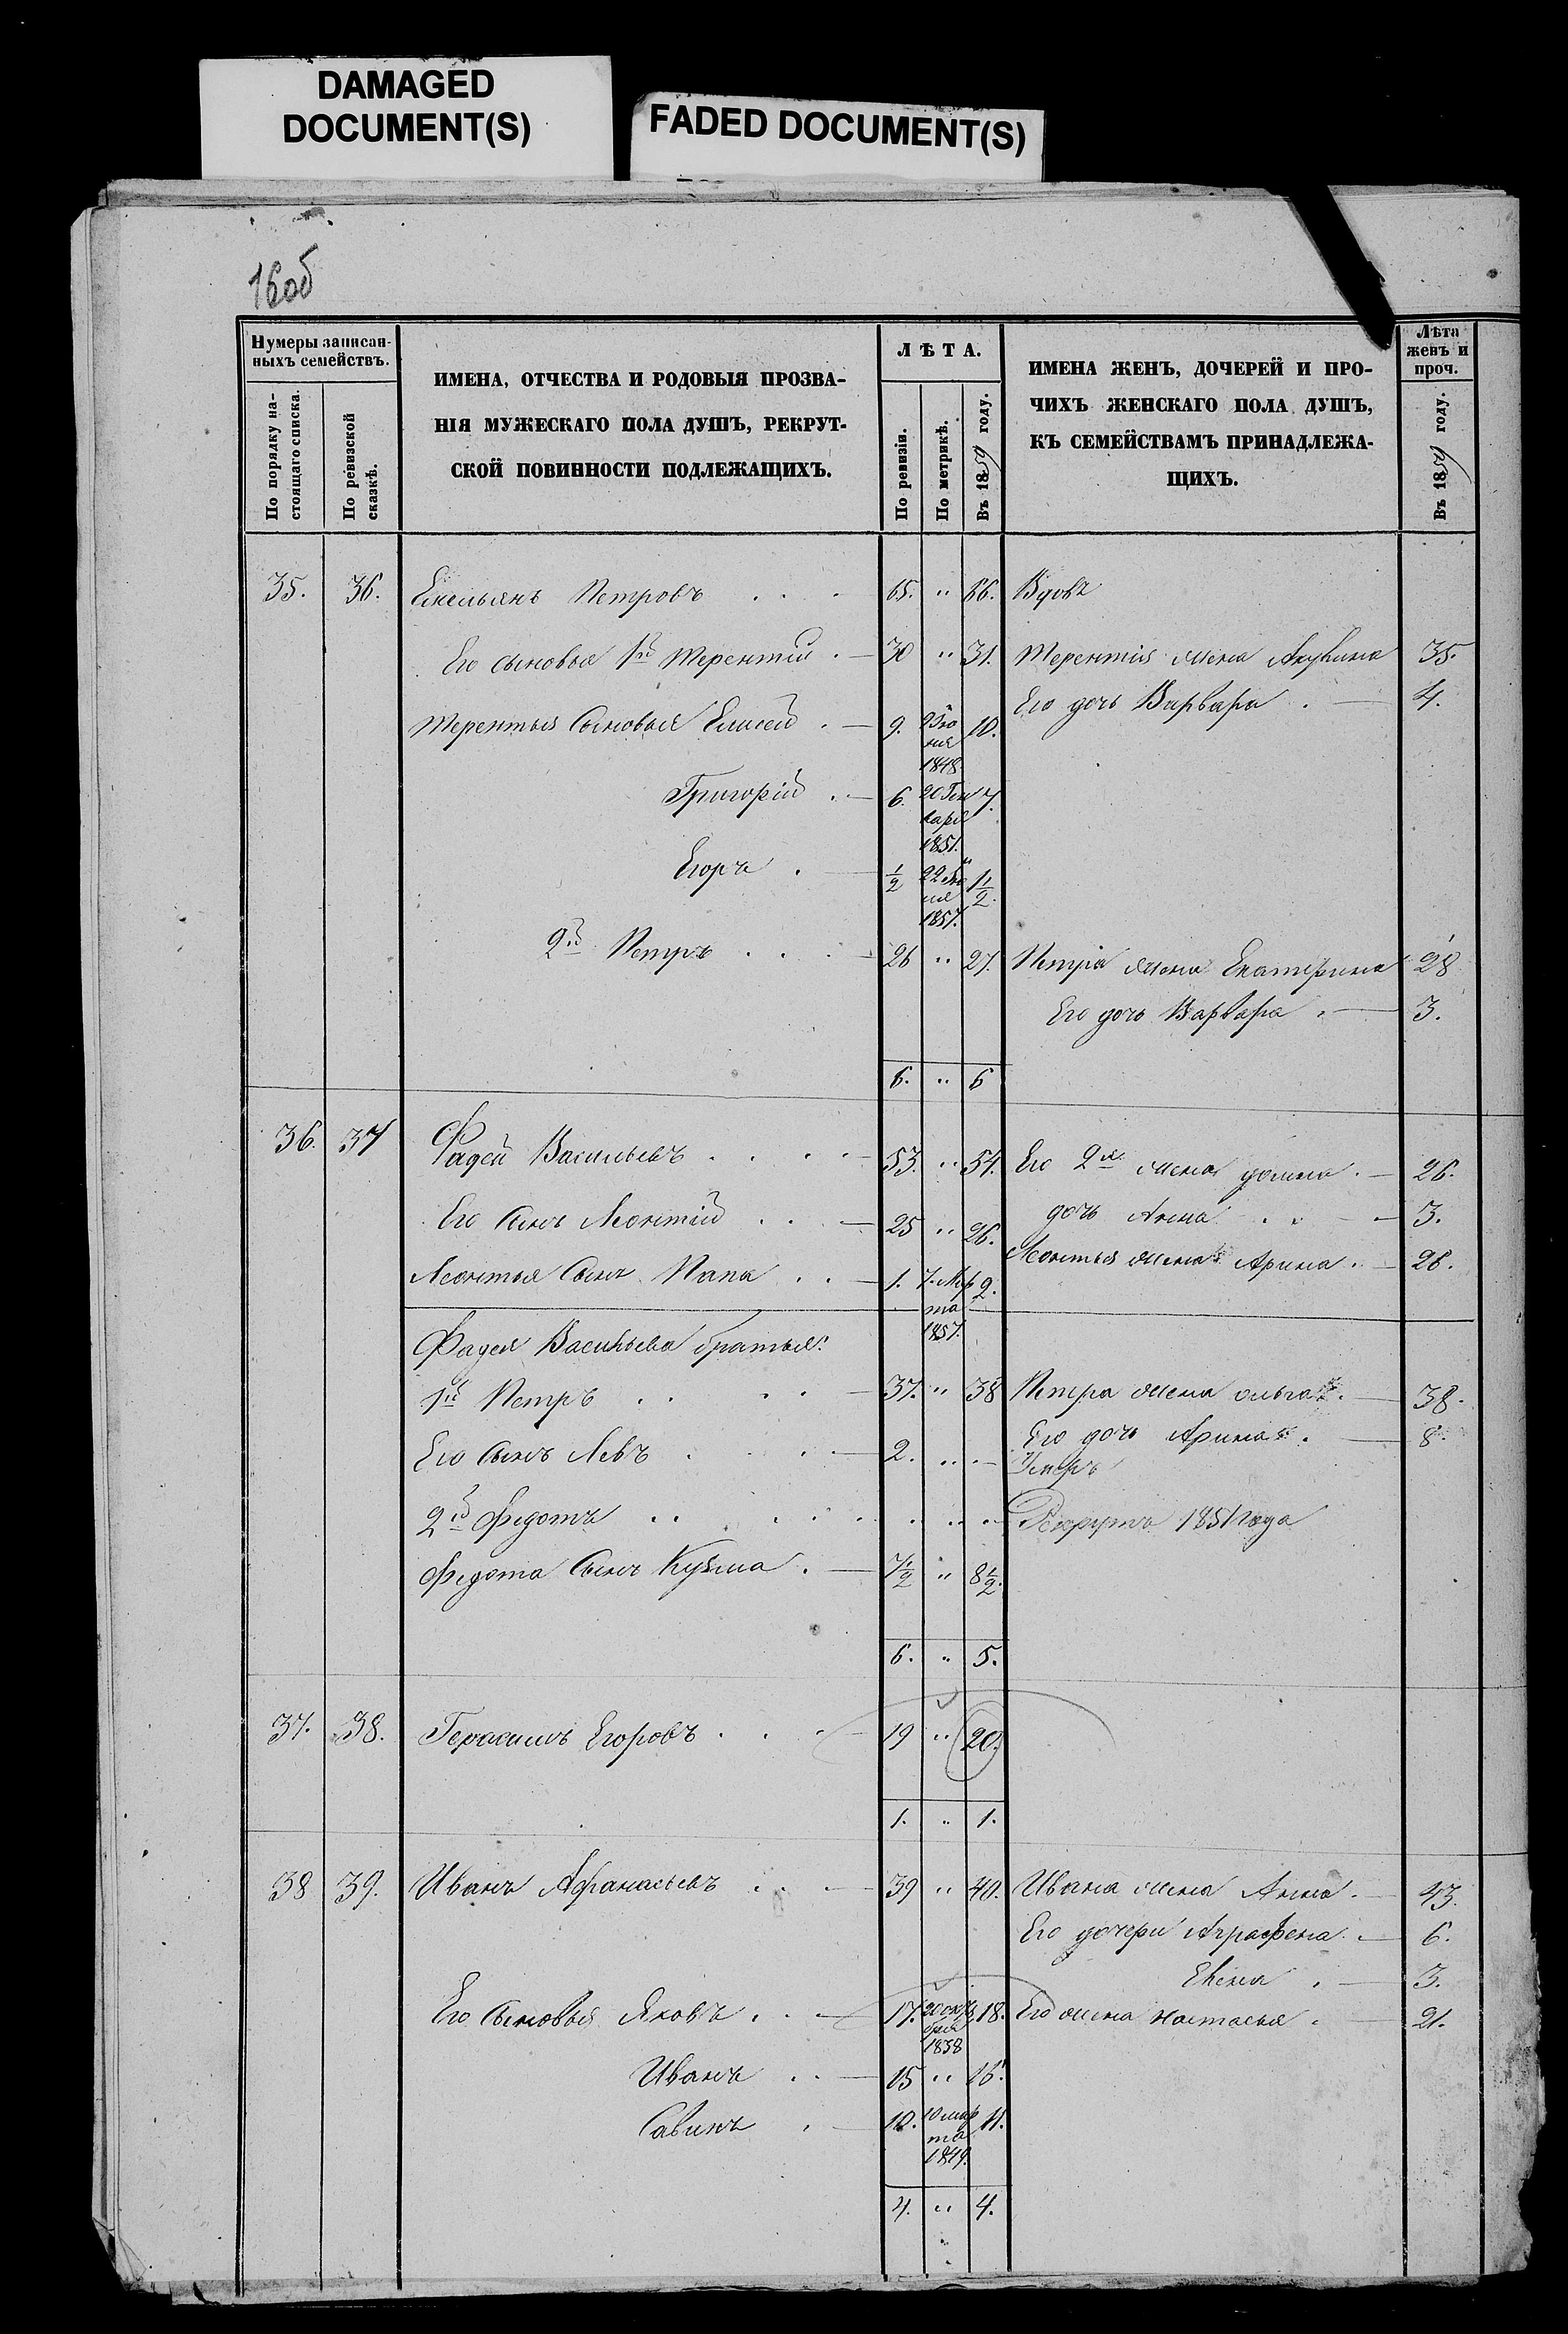 DAMAGED
DOCUMENT(S)
FADED DOCUMENT(S)
16об
Нумеры записан-
ныхъ семействъ.
По порядку на-
стоящаго списка.
По ревизской
сказкѣ.
ИМЕНА, ОТЧЕСТВА И РОДОВЫЯ ПРОЗВА-
НІЯ МУЖЕСКАГО ПОЛА ДУШЪ, РЕКРУТ-
СКОЙ ПОВИННОСТИ ПОДЛЕЖАЩИХЪ.
ЛѢТА.
По ревизіи.
По метрикѣ.
Въ 1859 году.
ИМЕНА ЖЕНЪ, ДОЧЕРЕЙ И ПРО-
ЧИХЪ ЖЕНСКАГО ПОЛА ДУШЪ,
КЪ СЕМЕЙСТВАМЪ ПРИНАДЛЕЖА-
ЩИХЪ.
Лѣта
женъ и
проч.
Въ 1859 году.
35. 36. Емельянъ Петровъ . . . 65. " 66. Вдовъ
Его сыновья 1й Терентій . — 30 " 31. Терентія жена Акулина 35.
Его дочь Варвара . — 4.
Терентья Сыновья Елисей . — 9. 10.
1848.
Григорій . — 6. 20 Ген 7.
варя
1851.
Егоръ . — 1/2 22 1 1/2.
1857.
2й Петръ . . . — 26 " 27. Петра жена Екатерина 28
Его дочь Варвара . — 3.
6. " 6
36. 37 Фадей Васильевъ . . . . — 53. " 54. Его 2я жена — 26.
дочь Анна . . . — 3.
Его Сынъ Леонтій . . . — 25 " 26.
Леонтья жена Арина . — 26.
Леонтья Сынъ . . — 1. 7. Мар 2.
та
1857.
Фадея Васильева братья:
1й Петръ . . . . — 37. " 38 Петра жена ольга . — 38.
Его дочь Арина . — 8.
Его Сынъ Левъ . . . — 2. " . — Умеръ
2й Федотъ . . . . . . . . — Рекрутъ 1851 года
Федота Сынъ Кузма . — 7 1/2 " 8 1/2.
6. " 5.
37. 38. Герасимъ Егоровъ . . . 19 " 20.
1. " 1.
38 39. Иванъ Афанасьевъ . . . — 39 " 40. Ивана жена Анна . — 43.
Его дочери Аграфена . — 6.
Елена . — 3.
Его Сыновья Яковъ . . . — 17. 20 октя 18. Его жена настасья . — 21.
бря
1838
Иванъ . . — 15 " 16.
Савинъ . — 10. 10 мар 11.
та
1849.
4. " 4.